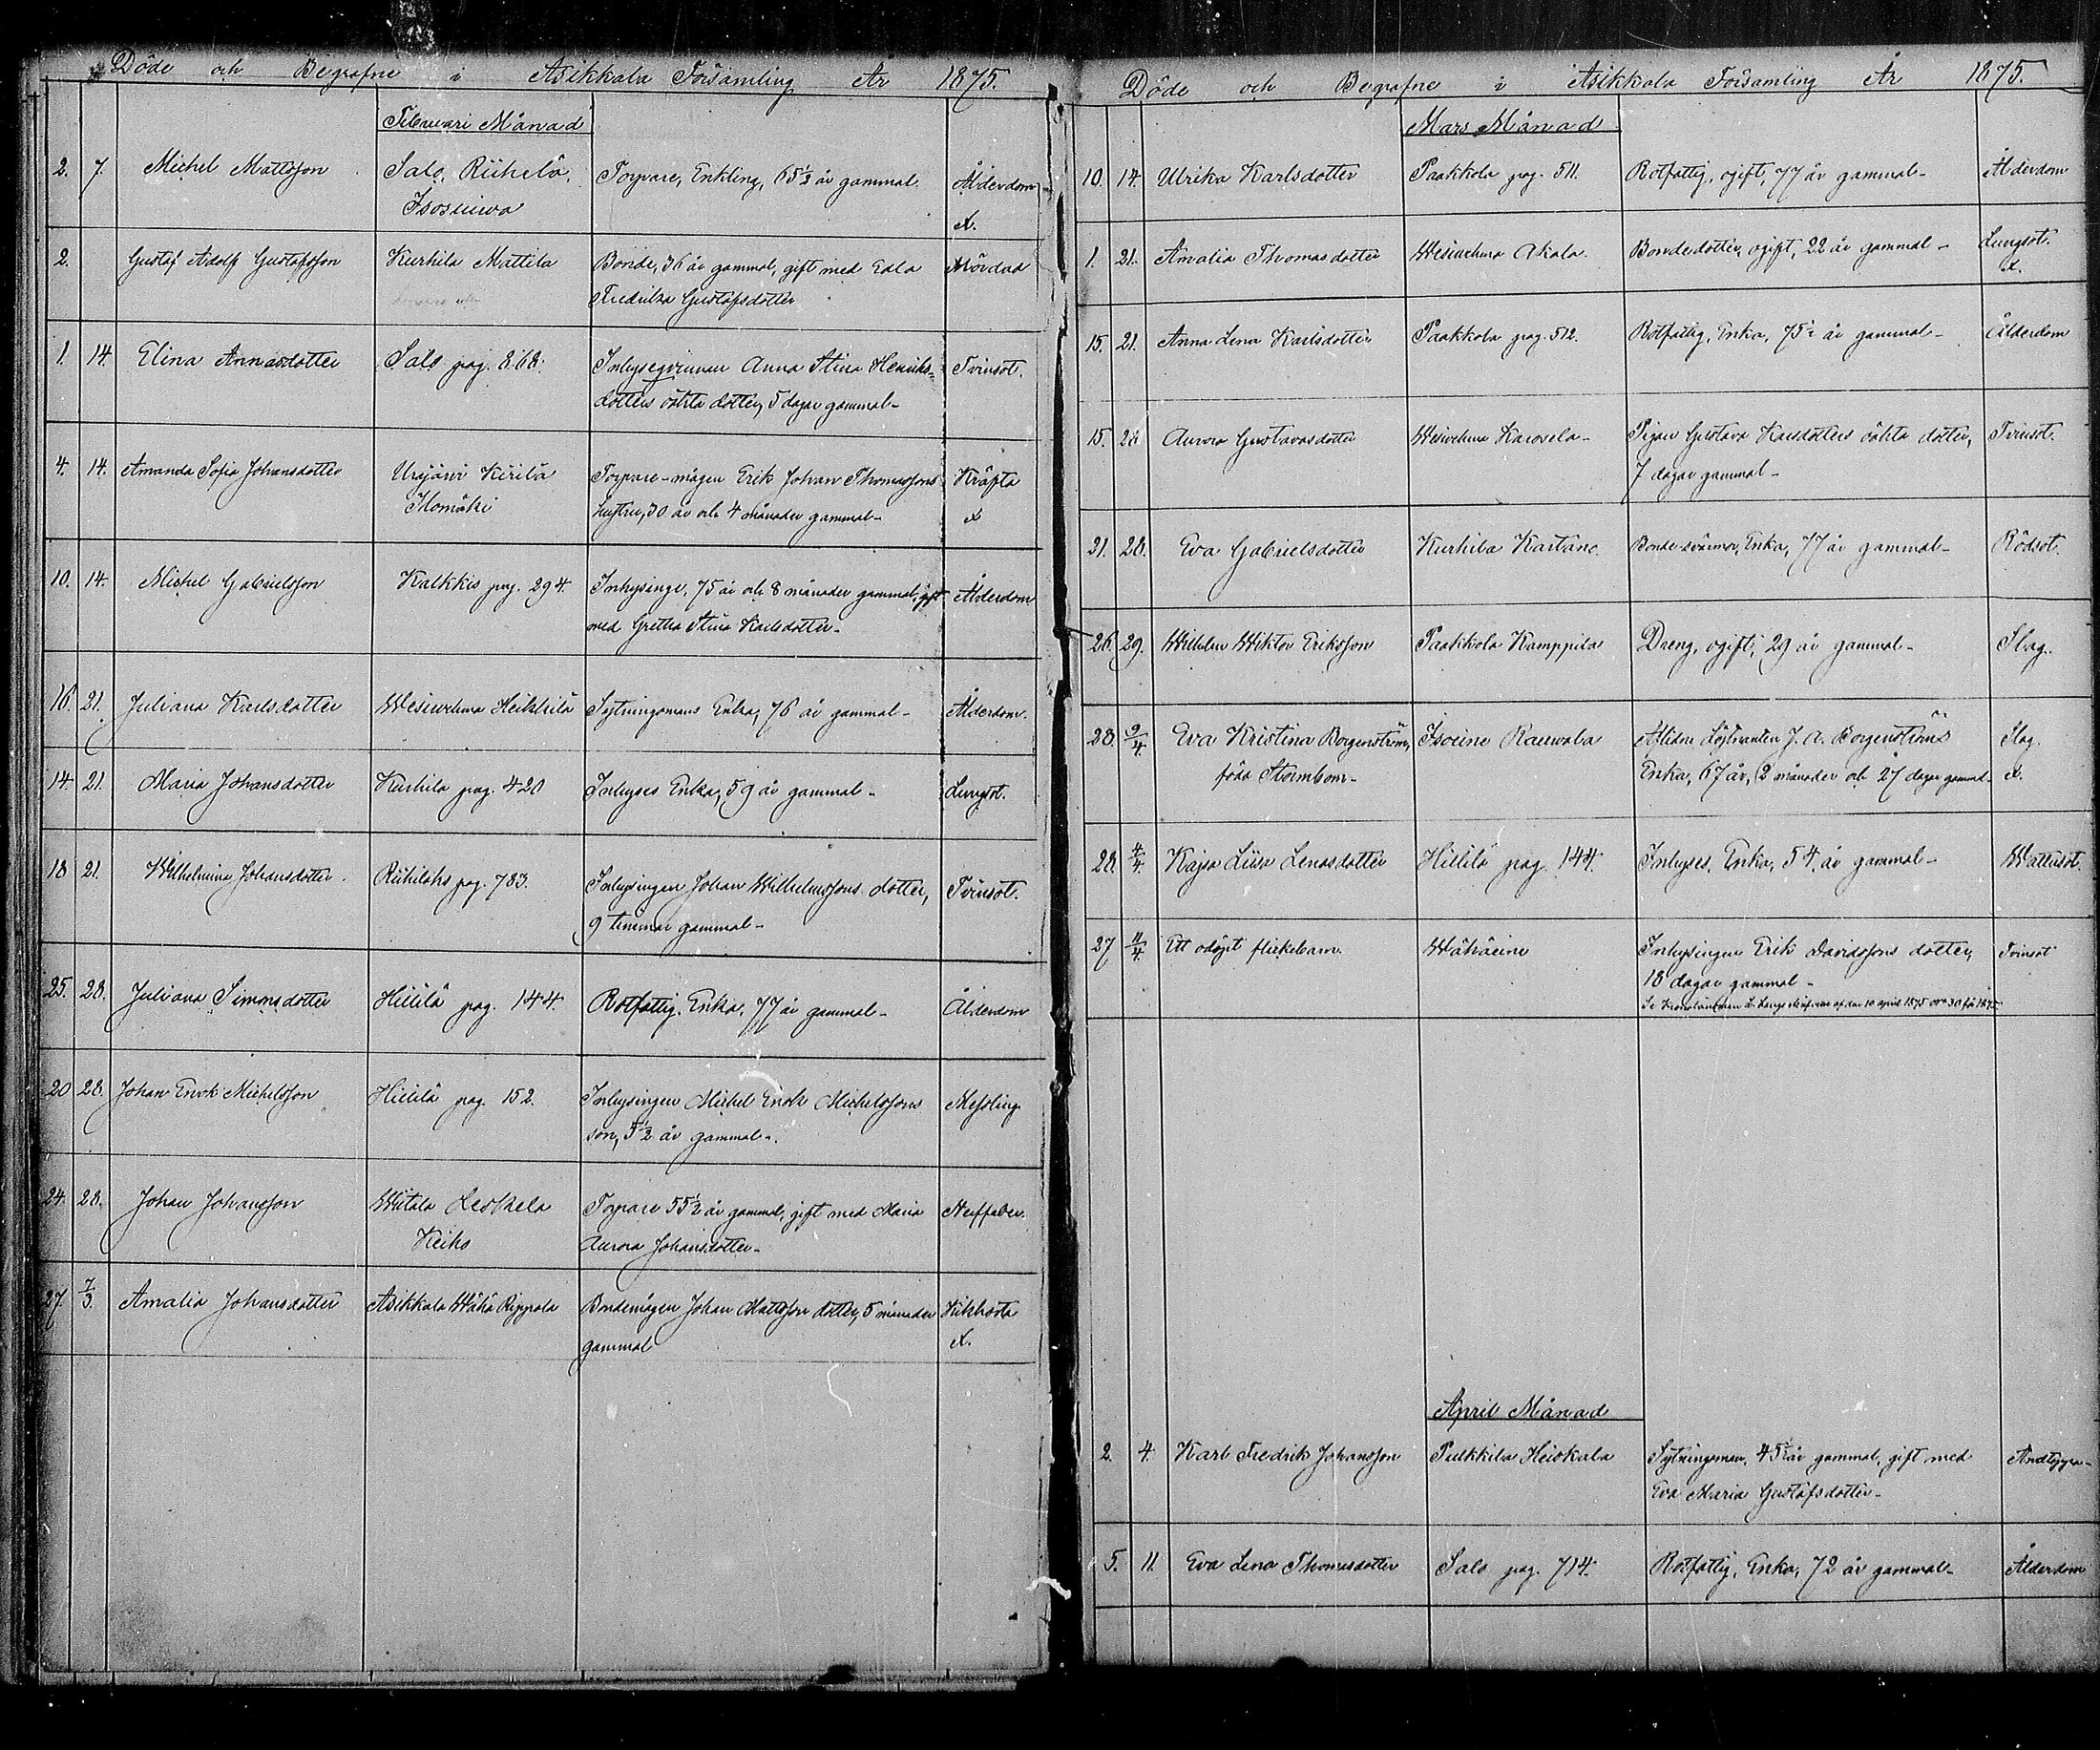 Döde och Begrafne i Asikkala Församling År 1875.
Februari Månad
2. 7. Michel Mattsson Salo, Riihelä, Torpare, Enkling, 65½ år gammal. Ålderdom
Isosuiwa x.
2. Gustaf Adolf Gustafsson Kurhila Mattila Bonde, 36 år gammal, gift med Edla Mördad
Fredrika Gustafsdotter
1. 14. Elina Annasdotter Salo pag. 868. Inhyseqvinnan Anna Stina Henriks= Tvinsot.
dotters oäkta dotter, 5 dagar gammal-
4. 14. Amanda Sofia Johansdotter Urajärvi Kirilä Torpare-mågen Erik Johan Thomassons Kräfta
hustru, 30 år och 4 månader gammal- x
10. 14. Michel Gabrielsson Kalkkis pag. 294. Inhysinge, 75 år och 8 månader gammal, gift Ålderdom
med Gretha Stina Karlsdotter-
16. 21. Juliana Karlsdotter Wesiwehma Heikkilä Sytningsmans Enka, 76 år gammal- Ålderdom.
14. 21. Maria Johansdotter Kurhila pag. 420 Inhyses Enka, 59 år gammal- Lungsot.
18 21. Wilhelmina Johansdotter. pag. 783. Inhysingen Johan Wilhelmssons dotter, Tvinsot.
9 timmar gammal-
25. 28. Juliana Simonsdotter Hillilä pag. 144. Rotfattig, Enka, 77 år gammal- Ålderdom
20 28. Johan Enok Michelsson Hillilä pag. 152. Inhysingen Michel Enok Michelssons Messling
son, 5½ år gammal-.
24. 28. Johan Johansson Wiitala Leskelä Torpare 55½ år gammal, gift med Maria Nerffeber.
Keiho Aurora Johansdotter-
27. 7/3. Amalia Johansdotter Asikkala Wähä Rippala Bondemågen Johan Mattsson dotter, 5 månader Kikhosta
gammal x.
Döde och Begrafne i Asikkala Församling År 1875.
Mars Månad
10. 14. Ulrika Karlsdotter Paakkola pag. 511. Rotfattig, ogift, 77 år gammal- Ålderdom
1. 21. Amalia Thomasdotter Wesiwehma Akala. Bondedotter, ogift, 22 år gammal- Lungsot.
x.
15. 21. Anna Lena Karlsdotter Paakkola pag. 512. Rotfattig, Enka, 75½ år gammal- Ålderdom
15. 28 Aurora Gustavasdotter Wesiwehma Pigan Gustava Karsdotters oäkta dotter, Tvinsot.
7 dagar gammal-
21. 28. Eva Gabrielsdotter Kurhila Kartano. Bonde-svärmor, Enka, 77 år gammal- Rödsot.
26. 29. Wilhelm Wiktor Eriksson Paakkola Kamppila Dreng, ogift, 29 år gammal- Slag.
28. 9/4 Eva Kristina Borgenström, Isoeine Rauwala Aflidne Löjtnanten J. A. Borgenströms Slag.
föda Stormbom- Enka, 67 år, 2 månader och 27 dagar gammal- x.
28. 4/4. Kajsa Liisa Lenasdotter Hillilä pag. 144. Inhyses, Enka, 54 år gammal- Wattusot.
27 11/4. Ett odöpt flickebarn. Wähäeine Inhysingen Erik Davidssons dotter, Tvinsot
18 dagar gammal-
Se af den 10 april 1875 30 för 1875
April Månad
2. 4. Karl Fredrik Johansson Pulkkila Heiskala Sytningsman, 45½ år gammal, gift med Andtäppa-
Eva Maria Gustafsdotter-
5. 11. Eva Lena Thomasdotter Salo pag. 714. Rotfattig, Enka, 72 år gammal- Ålderdom